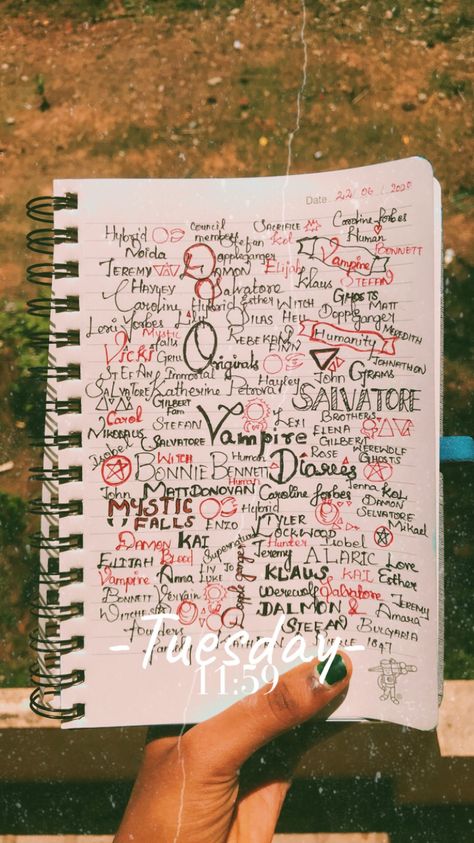 Date 22/06/2020
Hybrid Council Sacrifice Caroline Forbes
members Stefan Kol Human
Noida Doppleganger Elijah Vampire Bennett
Jeremy Damon Klaus Stefan
Hayley Salvatore Ghosts
Caroline Hybrid Esther Witch Dopple Matt
Lori Forbes Lily Silas Ganger
Mystic Falls Rebekah Humanity Meredith
Vicki Grill Originals Finn Johnathon
Stefan Immortal Hayley John Grams
Salvatore Katherine Petrova SALVATORE
Gilbert Fam Brothers
Carol Stefan Lexi Elena
Nikolaus Vampire Gilbert Werewolf
Salvatore Human Rose Ghosts
Isobel Witch Diaries
Bonnie Bennett Human Jenna Kol
John Matt Donovan Caroline Forbes Damon
MYSTIC Hybrid Selvatore
FALLS Enzo Tyler Mikael
Damon Kai Lockwood
Supernatural Hunter Isobel Love
Elijah Blood Jeremy ALARIC Esther
Vampire Anna Liv Jo KLAUS KAI
Luke Jeremy
Bennett Vervain Werewolf Salvatore Amara
Witches DALMON
Founders STEFAN Bulgaria
family 1847
-Tuesday-
11:59